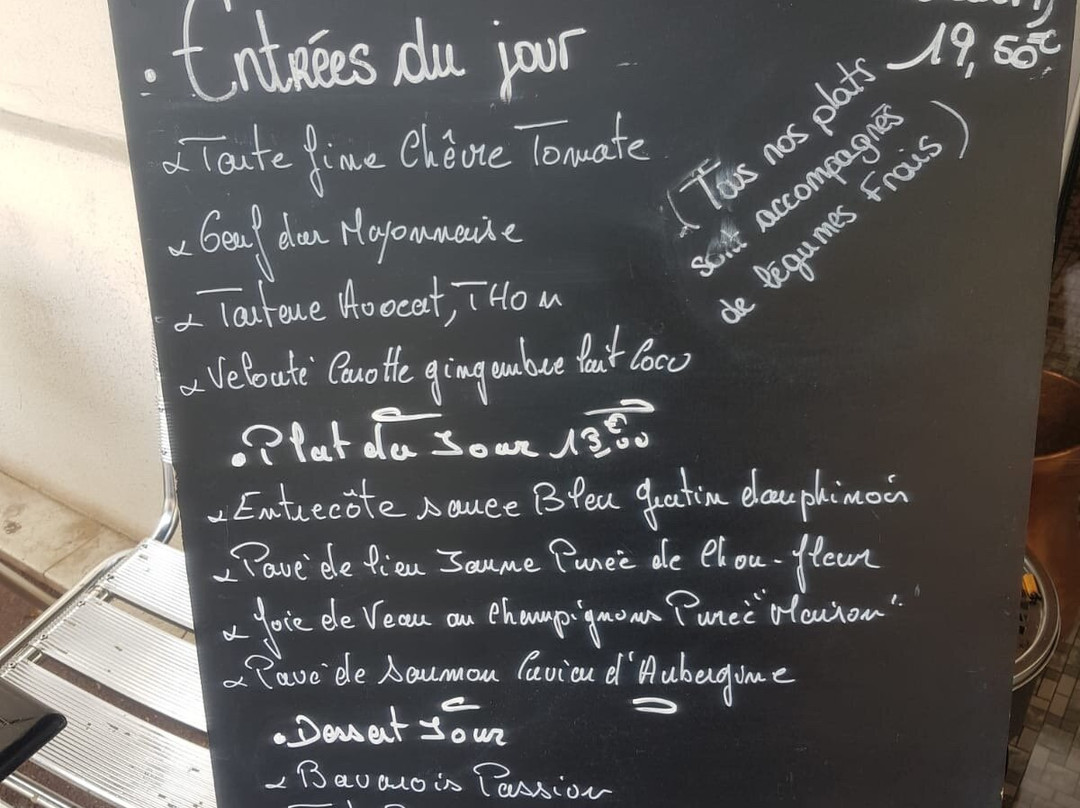 19,50€
• Entrées du jour
(Tous nos plats
sont accompagnés
de légumes Frais)
x Tarte fine Chèvre Tomate
x Oeuf dur Mayonnaise
x Tartare Avocat, THon
x Velouté Carotte gingembre lait Coco
• Plat du Jour 13€00
x Entrecôte sauce Bleu gratin dauphinois
x Pavé de lieu Jaune Purée de Chou-fleur
x foie de Veau au Champignons Purée "Maison"
x Pavé de Saumon Caviar d'Aubergine
• Dessert Jour
x Bavarois Passion